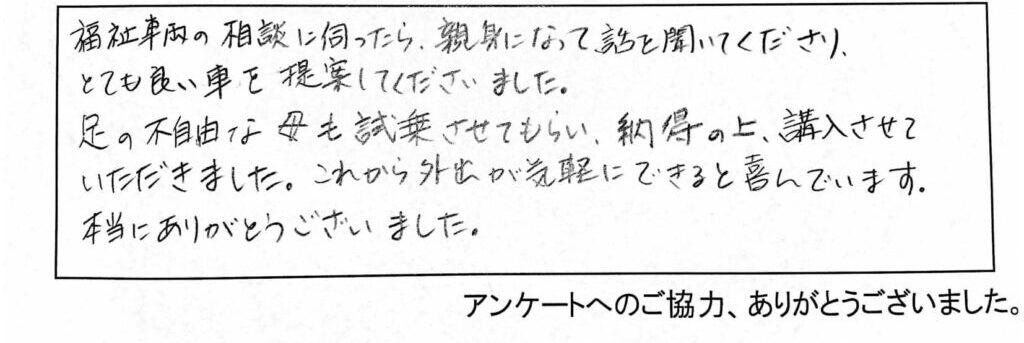 福祉車両の相談に伺ったら、親身になって話を聞いてくださり、
とても良い車を提案してくださいました。
足の不自由な母も試乗させてもらい、納得の上、購入させて
いただきました。これから外出が気軽にできると喜んでいます。
本当にありがとうございました。
アンケートへのご協力、ありがとうございました。